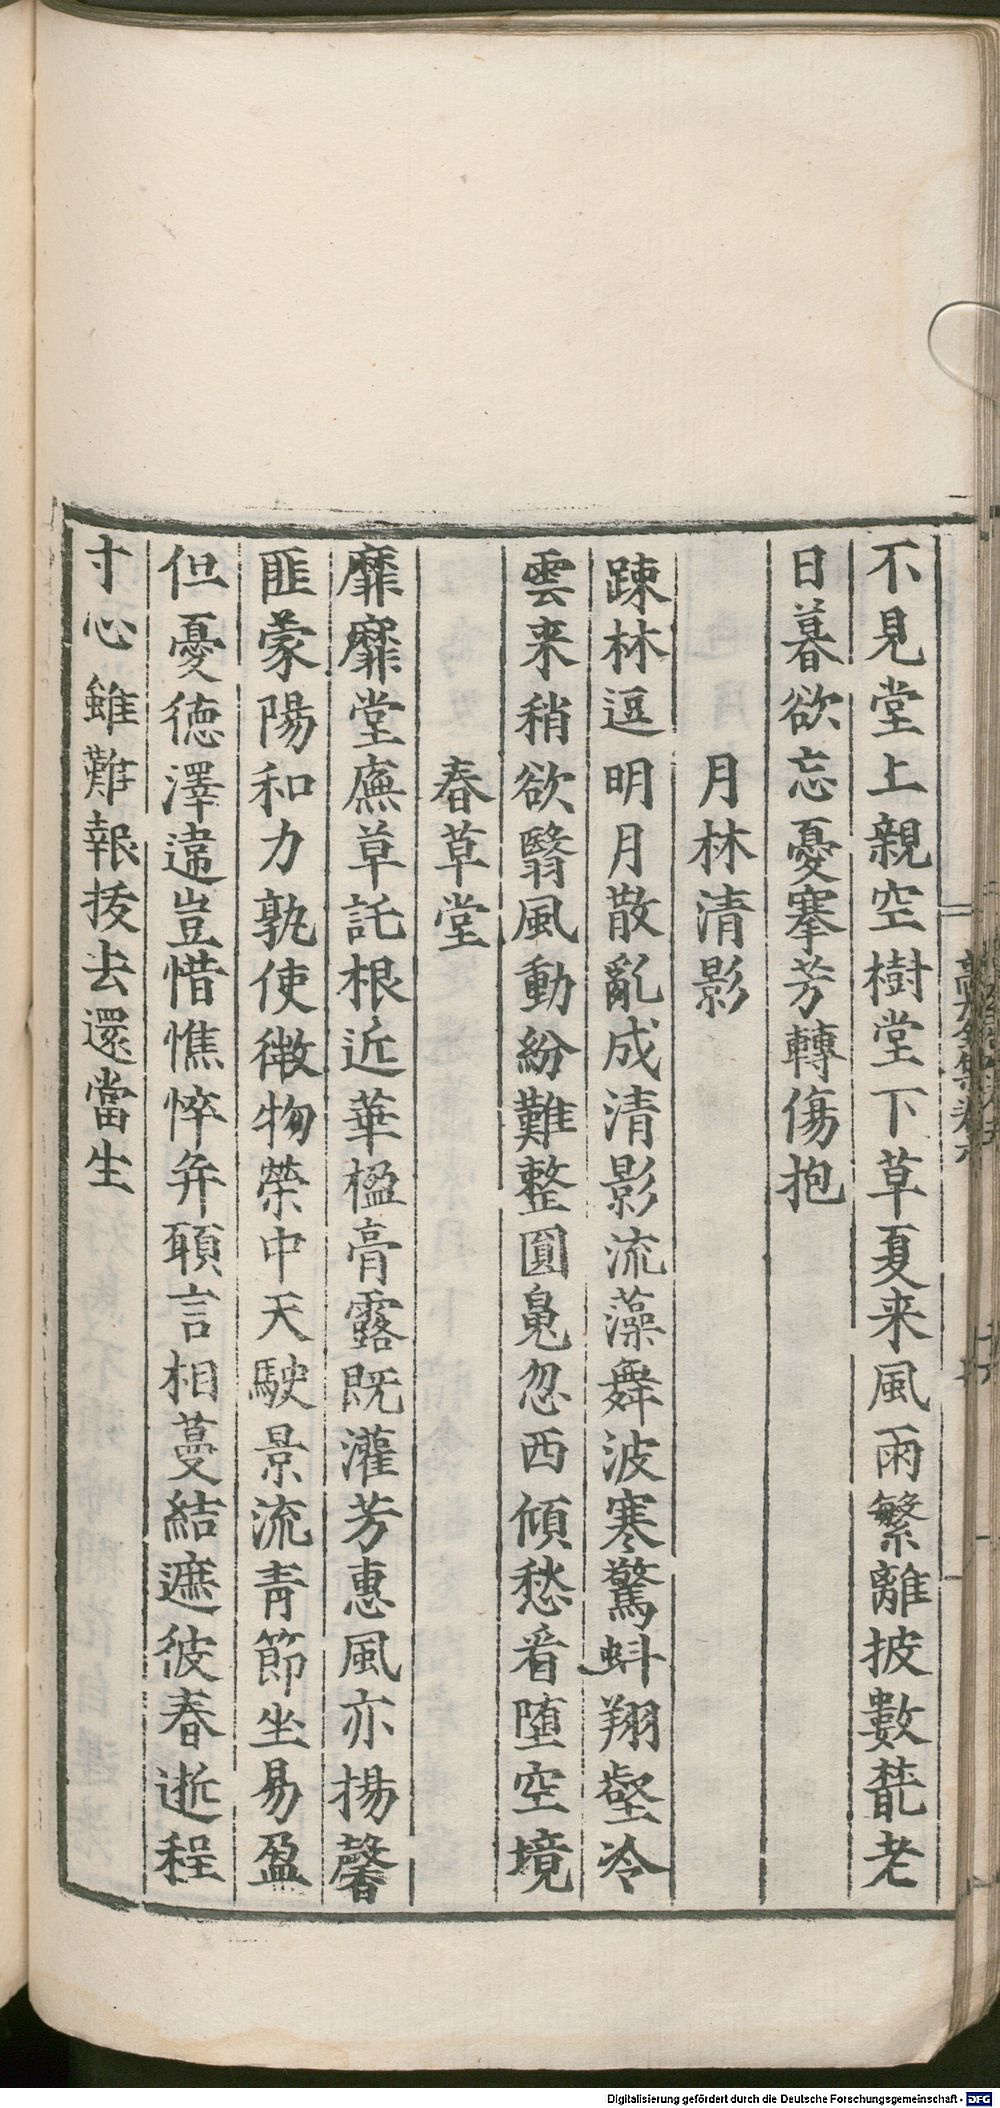 不見堂上親空樹堂下草夏来風雨繁離披數叢老
日暮欲忘憂搴芳轉傷抱
月林清影
踈林逗明月散亂成清影流藻舞波寒驚蚪翔壑冷
雲来稍欲翳風動紛難整圓䰟忽西傾愁看堕空境
春草堂
靡靡堂廡草託根近華楹膏露既灌芳惠風亦揚馨
匪蒙陽和力孰使微物榮中天駛景流青節坐易盈
但憂德澤違豈惜憔悴并願言相蔓結遮彼春逝程
寸心雖難報拔去還當生
Digitalisierung gefördert durch die Deutsche Forschungsgemeinschaft - DFG